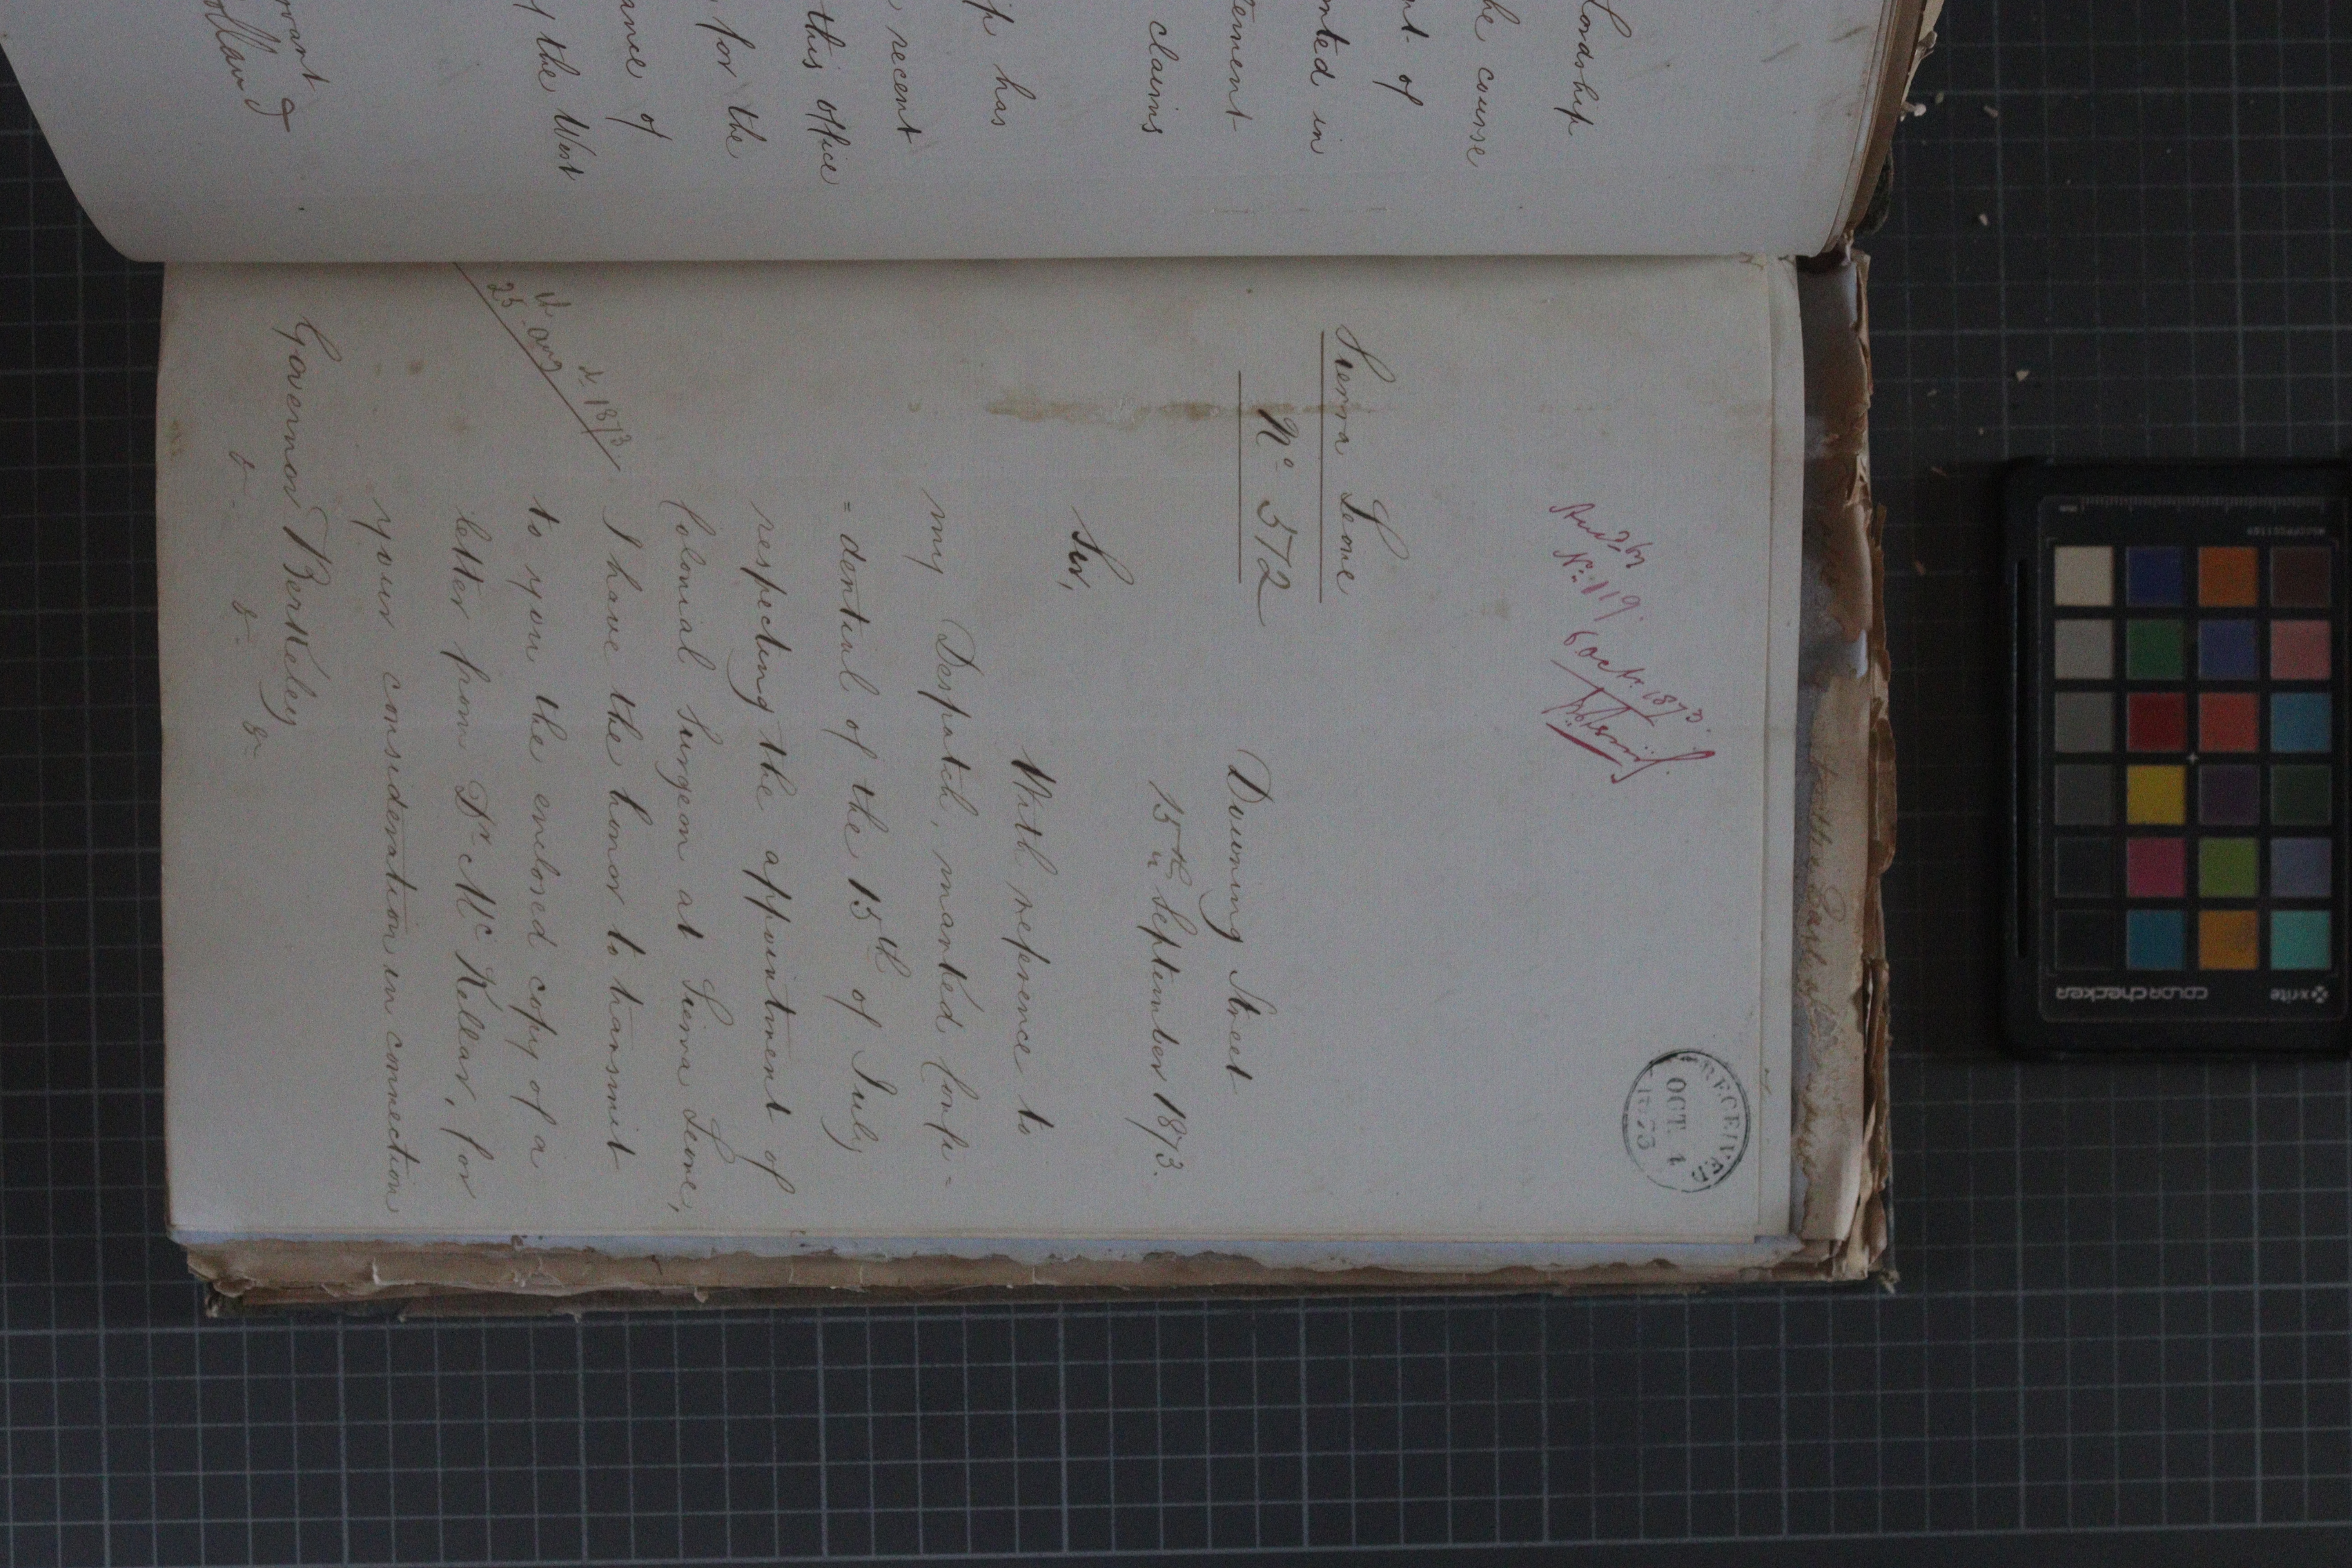 Lordship
he course
nt of
nted in
tement
claims
p has
recent
this office
for the
ance of
the West
rvant
olland
RECEIVED
OCT. 4
1873
Ansd by
No. 119.
6 Octr. 1873.
Sierra Leone
No. 572
Downing Street
15th September 1873.
Sir,
With reference to
my Despatch, marked Confi-
=dential of the 15th of July
respecting the appointment of
Colonial Surgeon at Sierra Leone,
I have the honor to transmit
to you the enclosed copy of a
letter from Dr McKellar, for
your consideration in connection
25 Aug
1873
Governor Berkeley
&c. &c. &c.
colorchecker
x-rite